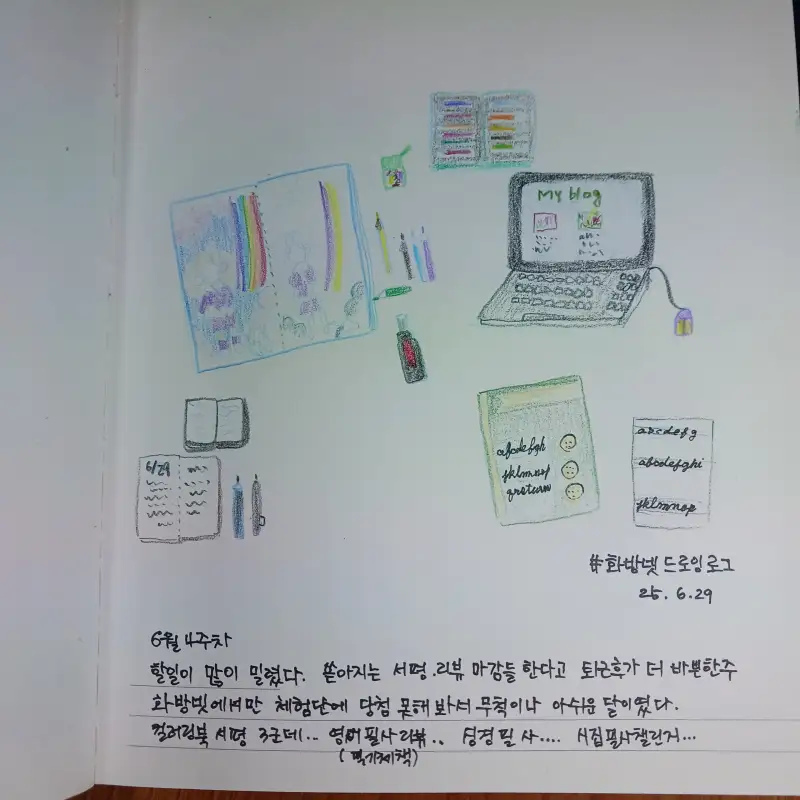 My blog
6/29
abcdefgh
jklmnop
qrstuvw
abcdefg
abcdefghi
jklmnop
#화방넷드로잉로그
25. 6. 29
6월 4주차
할일이 많이 밀렸다. 쏟아지는 서평.리뷰 마감들 한다고 퇴근후가 더 바쁜한주
화방넷에서만 체험단에 당첨 못해봐서 무척이나 아쉬운 달이였다.
컬러링북 서평 3군데.. 영어필사리뷰.. 성경필사.... 시집필사챌린지...
(필기체책)